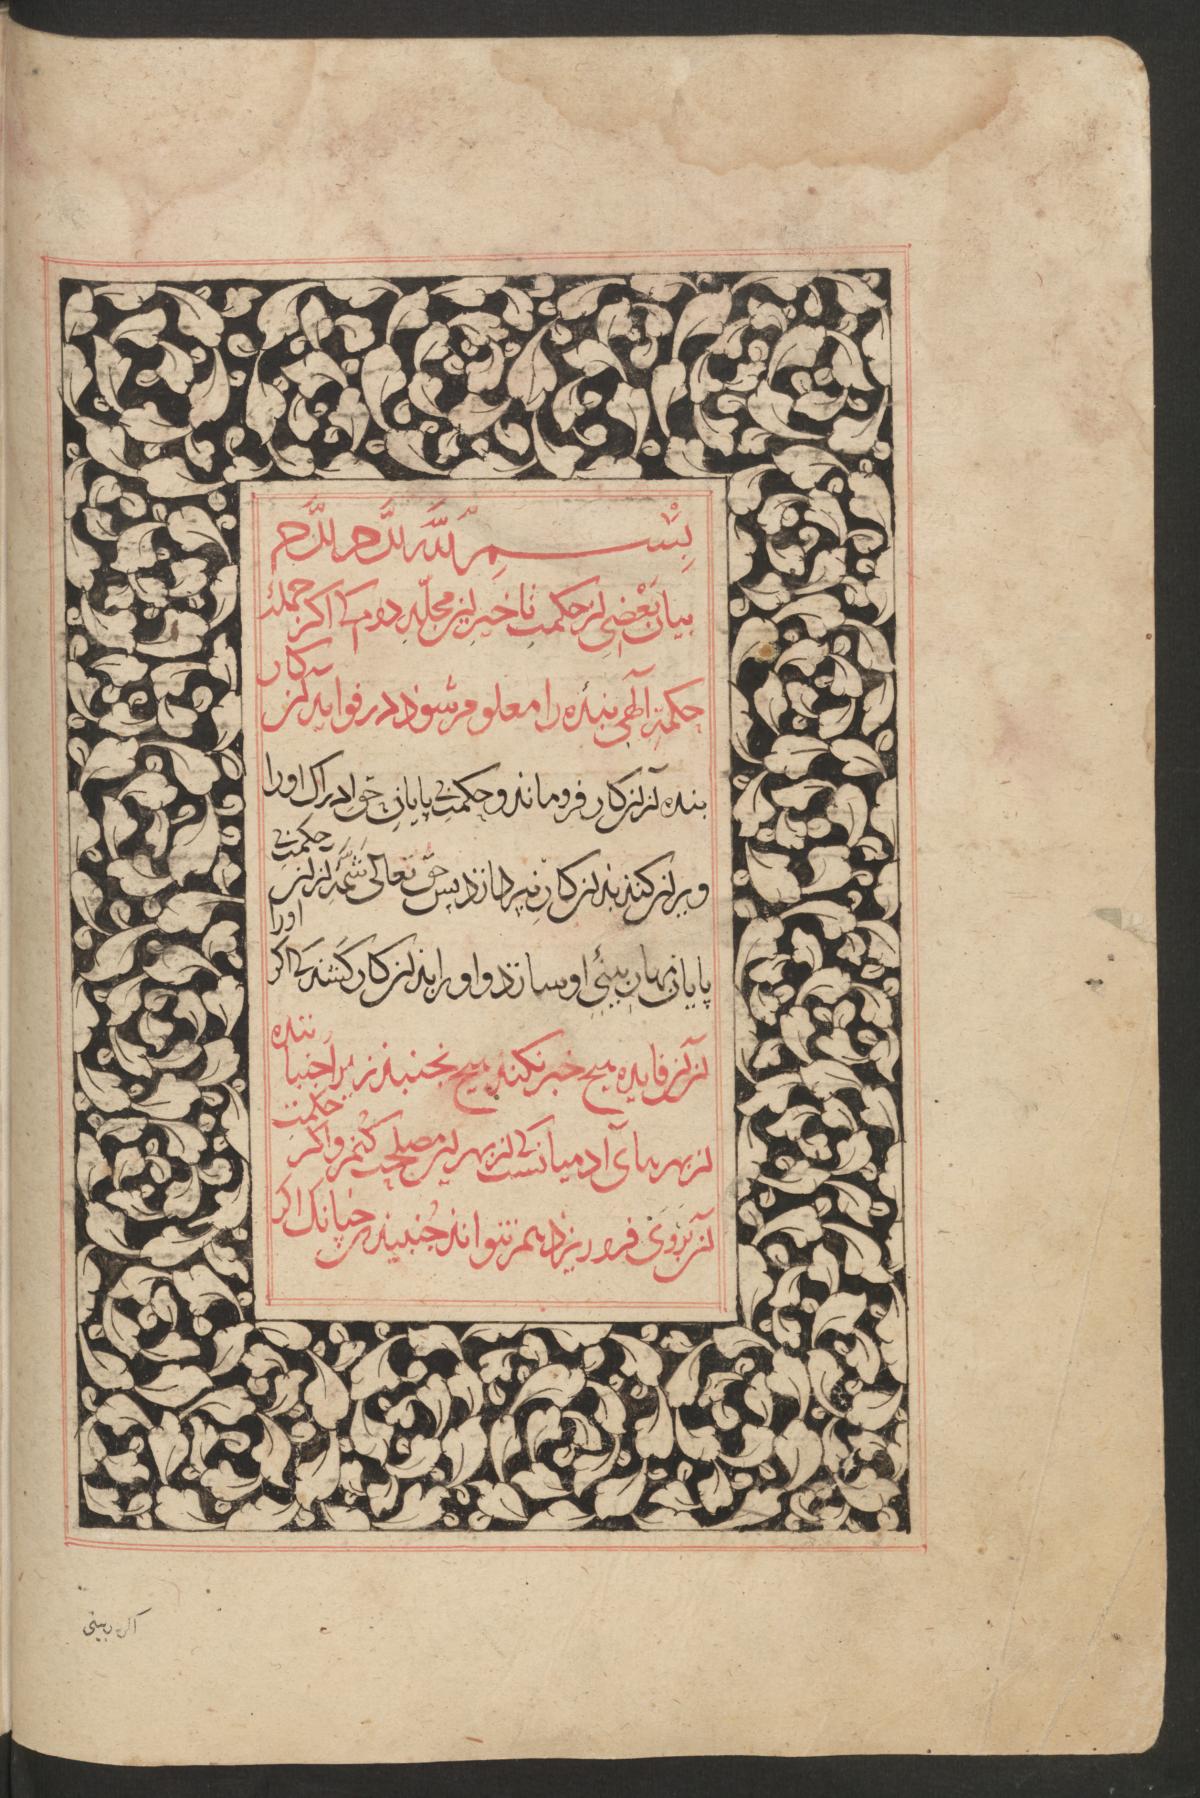 بِسْمِ اللَّه الرَّحمن الرَّحیم
بیان بَعْضی از حکمت تاخیرِ این مجلّدِ دوم که اگر جملهٔ
حکمتِ الٓهی بنده را معلوم شود در فوایدِ آن کار
بنده از آن کار فرو ماند و حکمتِ بی پایانِ حق ادراک او را
ویران کند بدان کار نپردازد پس حق تعالی شَمّهٔ از آن حکمتِ بی
پایان مهارِ بینئِ او سازد و او را بدان کار کشد که اگر او را
از آن فایده هیچ خبر نکند هیچ نجنبد زیرا جنباننده
از بهرهای آدمیانست که از بهرِ آن مصلحت کُنم و اگر حکمت
آن بَرْوَی فرو ریزد هم نتواند جُنبیدن چنانک اگر
اگر در بینی